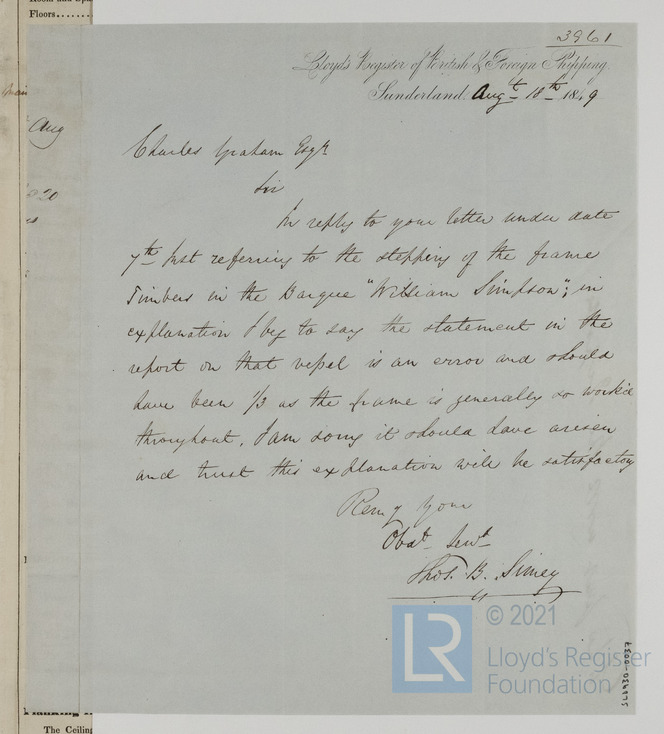 Floors
Aug
20
3961
Lloyd's Register of British & Foreign Shipping.
Sunderland Augt 18th 1849
Charles Graham Esqr
Sir
In reply to your letter under date
7th Inst referring to the stepping of the frame
Timbers in the Barque "William Simpson"; in
explanation I beg to say the statement in the
report on that vessel is an error and should
have been 1/3 as the frame is generally so work'd
throughout, I am sorry it should have arisen
and trust this explanation will be satisfactory
Remg Your
Obdt Servt
Thos. B. Simey
© 2021
LR
Lloyd's Register
Foundation
The Ceiling